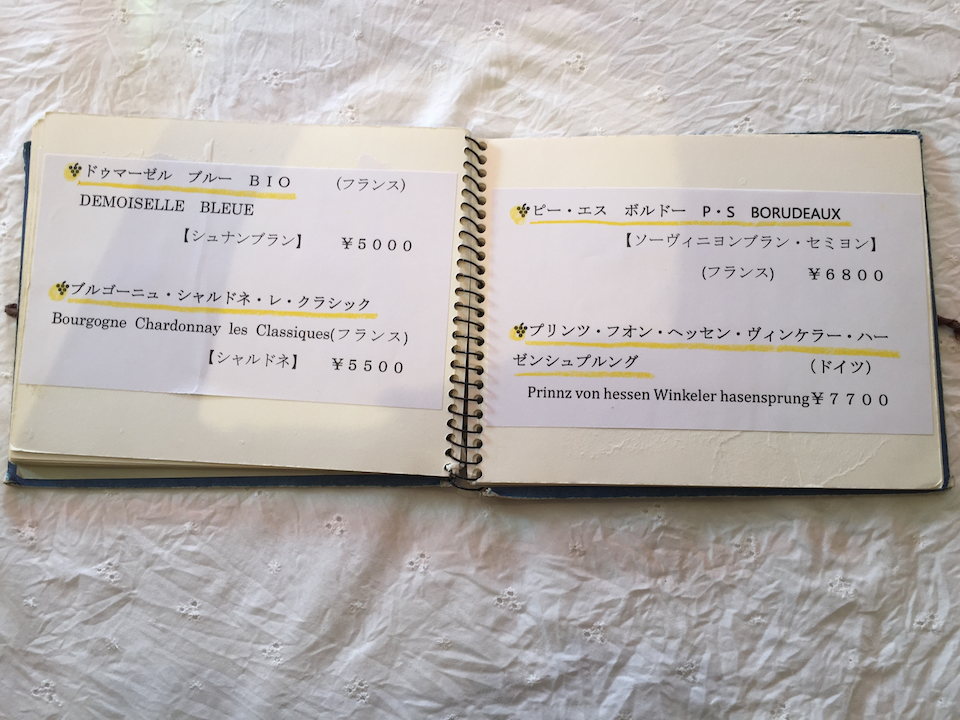 ドゥマーゼル ブルー BIO (フランス)
DEMOISELLE BLEUE
【シュナンブラン】 ￥5000
ブルゴーニュ・シャルドネ・レ・クラシック
Bourgogne Chardonnay les Classiques(フランス)
【シャルドネ】 ￥5500
ピー・エス ボルドー P・S BORUDEAUX
【ソーヴィニヨンブラン・セミヨン】
(フランス) ￥6800
プリンツ・フオン・ヘッセン・ヴィンケラー・ハー
ゼンシュプルング (ドイツ)
Prinnz von hessen Winkeler hasensprung￥7700